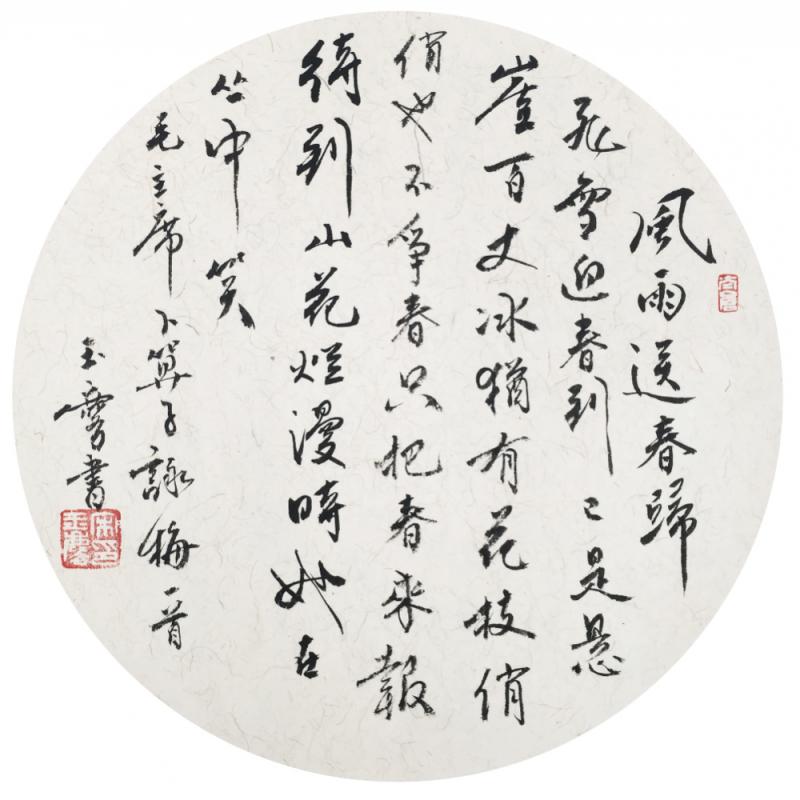 風雨送春歸
飛雪迎春到已是懸
崖百丈冰猶有花枝俏
俏也不爭春只把春來報
待到山花爛漫時她在
丛中笑
毛主席卜算子詠梅一首
玉書